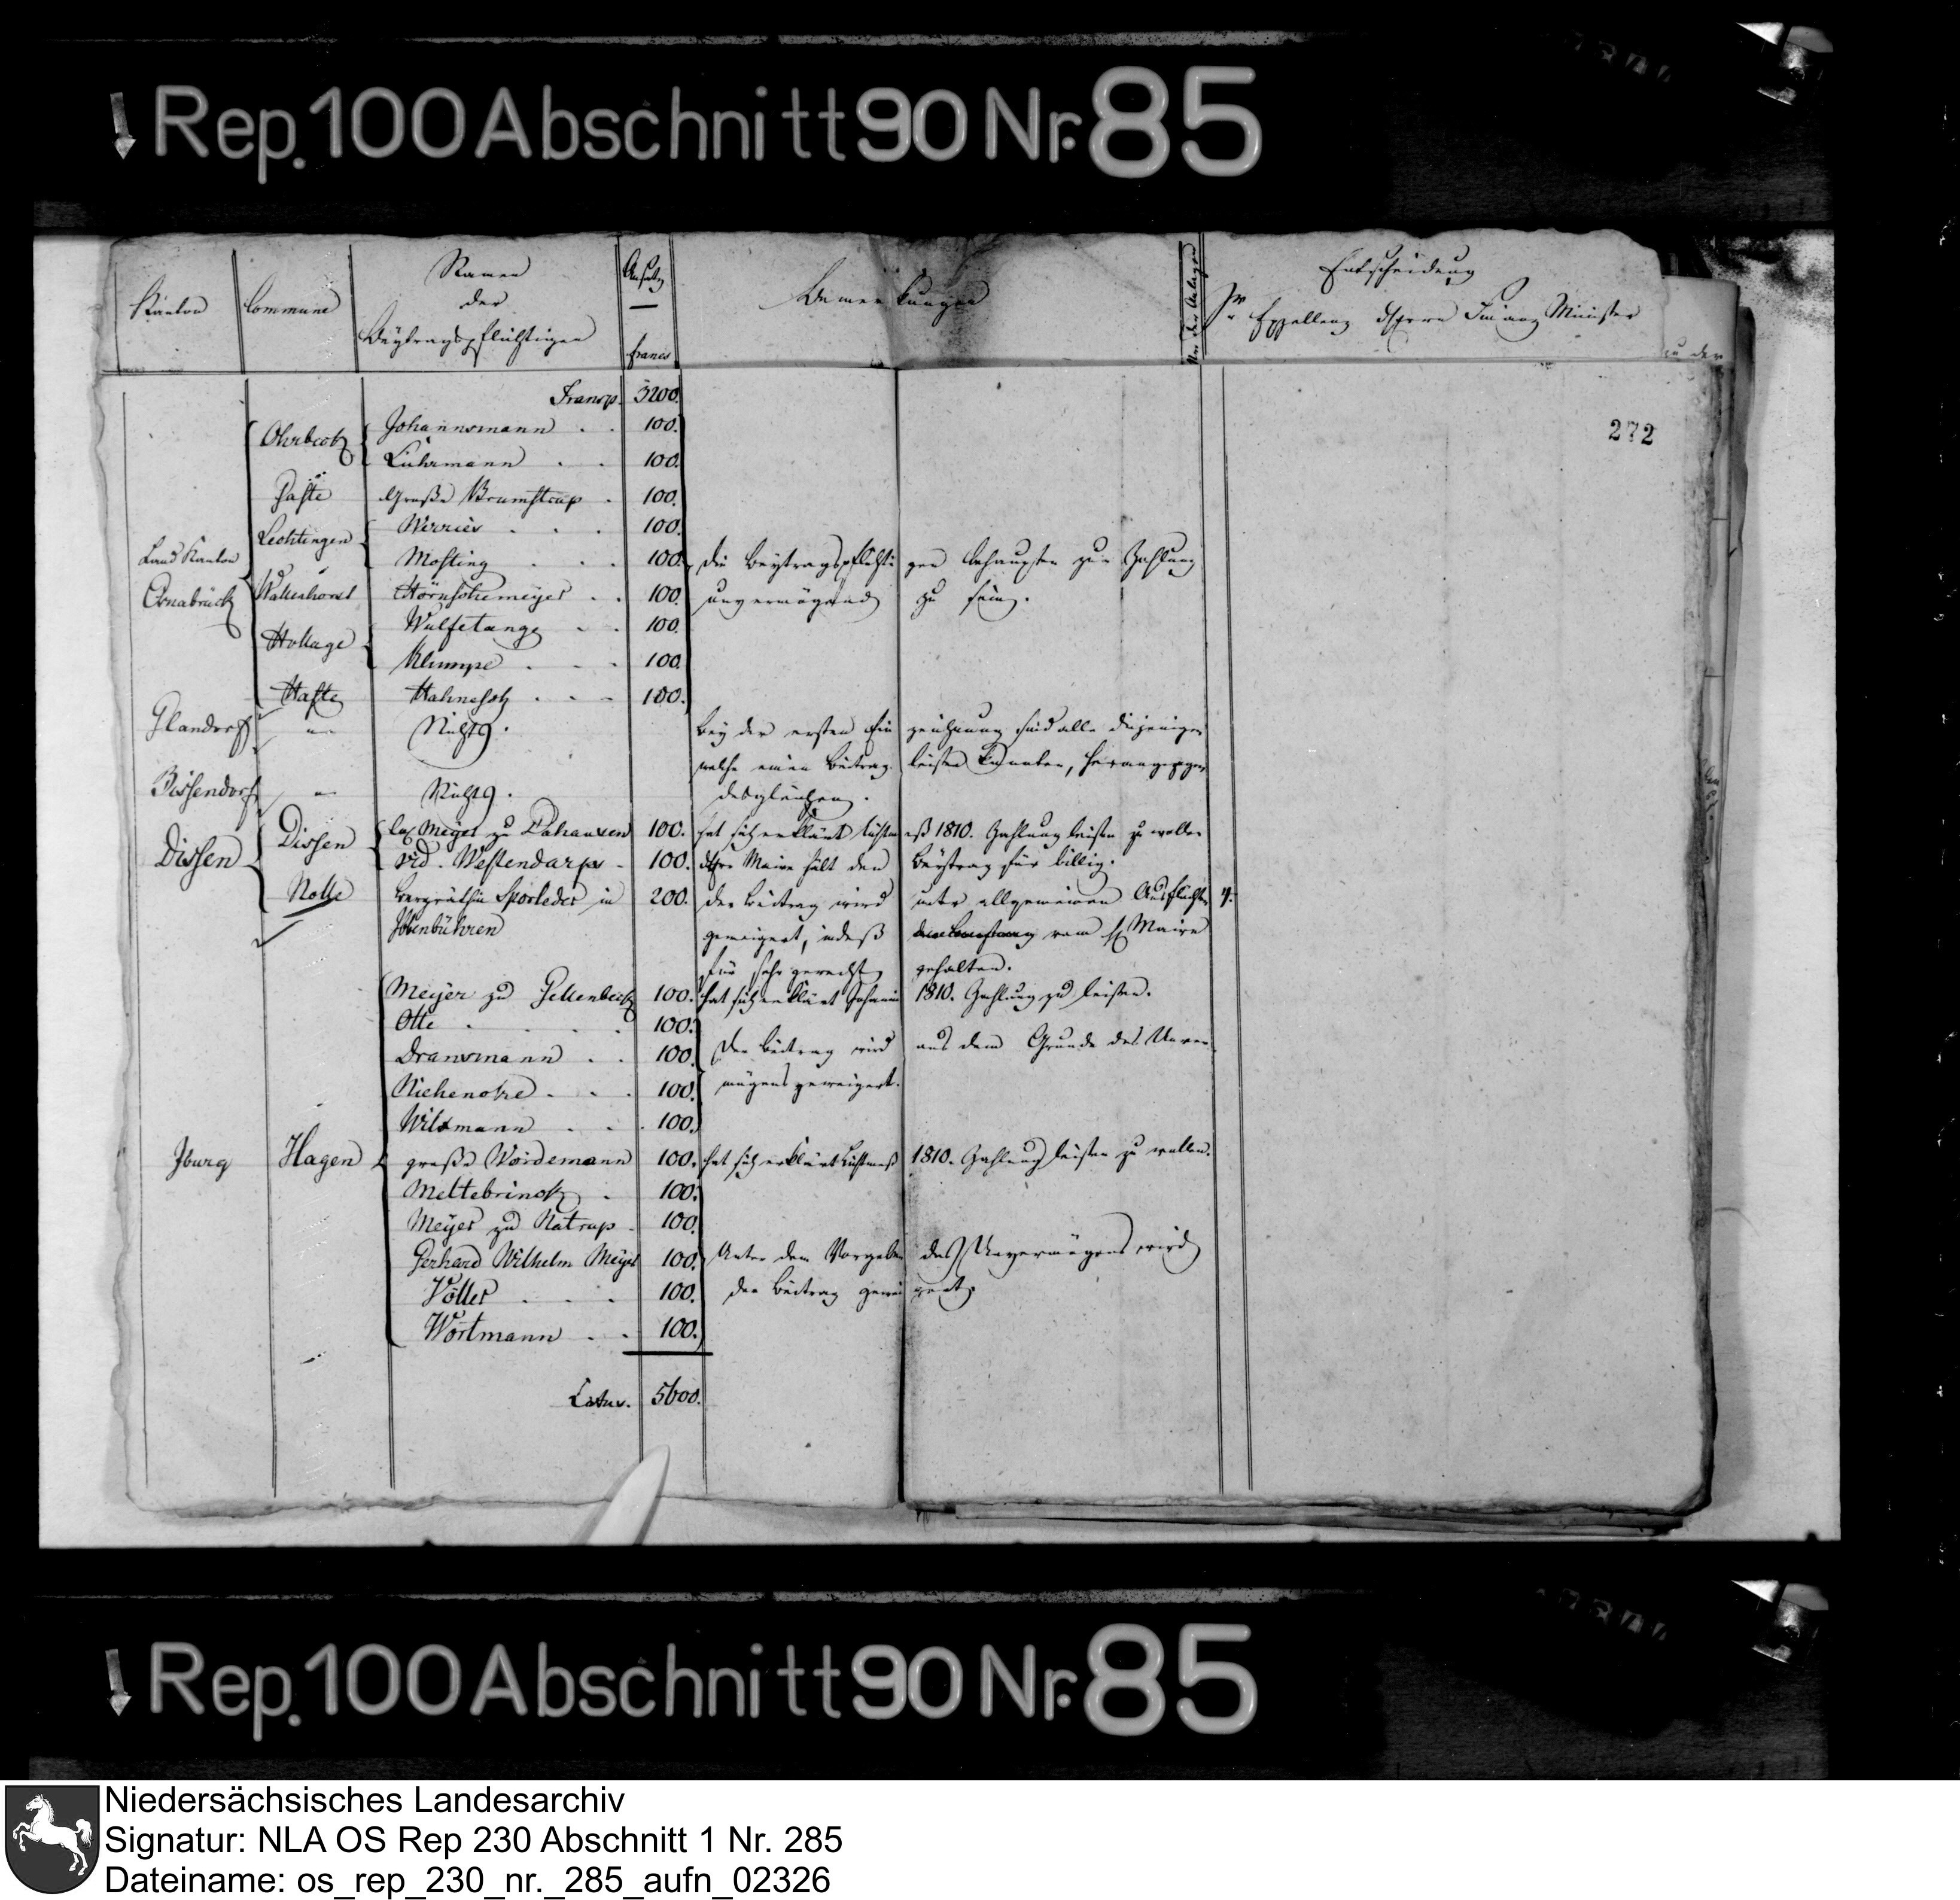 Rep. 100 Abschnitt 90 Nr. 85
Kanton Commune Namen der Beÿtragspflichtigen Ansatz francs Bemerkungen Nro der Anlagen Entscheidung
Sr Excellenz des Herrn Finanz Minister
272
Transp. 3200.
Ohrbeck Johannsmann . . 100.
Lührmann . . 100.
Gaste Große Brumstrup . 100.
Land Kanton Osnabrück
Lechtingen Werries . . . 100.
Mosting . . . 100. die Beytragspflichtigen behaupten zur Zahlung
Wallenhorst Hörnschemeyer . . 100. unvermögend zu sein.
Hollage Wulfetange . . 100.
Klumpe . . . 100.
Haste Hahnefoh . . . 100.
Glandorf " Nichts. Bey der ersten Einzeichnung sind alle diejenigen
welche einen Beitrag leisten konnten, herangezogen
Bissendorf " Nichts. desgleichen.
Dissen Dissen Meyer zu 100. hat sich erklärt 1810. Zahlung leisten zu wollen
vid. Westendarp 100. Maire hält den Beytrag für billig.
Nolle Bergräthin Sporleder in 200. der Beitrag wird unter allgemeinen Ausflüchten 4.
Ibbenbühren geweigert, indeß vom H. Maire
für sehr gerecht gehalten.
Meÿer zu Gellenbeck 100. hat sich erklärt 1810. Zahlung zu leisten.
Otte . . . . 100.
Dransmann . . 100. Der Beitrag wird aus dem Grunde des Unver-
Nichenoke . . . 100. mögens geweigert.
Wilxmann . . . 100.
Iburg Hagen große Wördemann 100. hat sich erklärt Lichtmeß 1810. Zahlung leisten zu wollen.
Meltebrinck . 100.
Meÿer zu Natrup 100.
Gerhard Wilhelm Meÿer 100. Unter dem Vorgeben des Unvermögens wird
Völler . . . 100. der Beitrag geweigert.
Wortmann . . 100.
Latus. 5600.
Rep. 100 Abschnitt 90 Nr. 85
Niedersächsisches Landesarchiv
Signatur: NLA OS Rep 230 Abschnitt 1 Nr. 285
Dateiname: os_rep_230_nr._285_aufn_02326